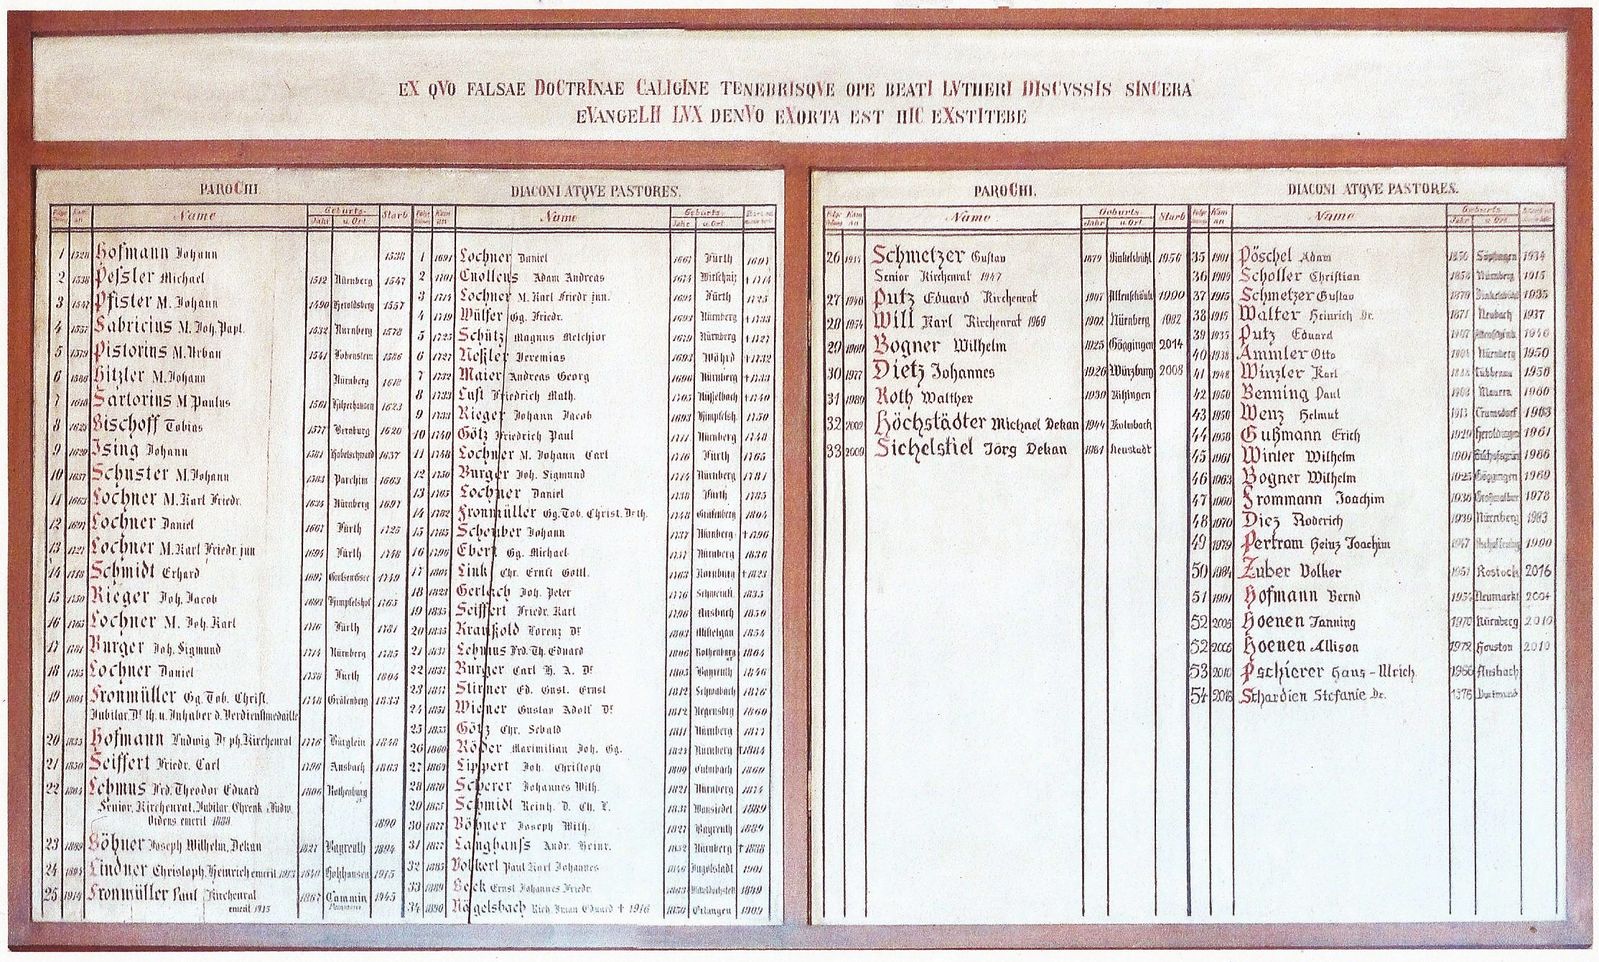 EX QVO FALSAE DOCTRINAE CALIGINE TENEBRISQVE OPE BEATI LVTHERI DISCVSSIS SINCERA
EVANGELII LVX DENVO EXORTA EST HIC EXSTITERE
PAROCHI
Name Geburts- Jahr u. Ort Starb
1 1528 Hofmann Johann 1538
2 1538 Peßler Michael 1512 Nürnberg 1547
3 1547 Pfister M. Johann 1490 Heroldsberg 1557
4 1557 Fabricius M. Joh. Papt. 1532 Nürnberg 1578
5 1579 Pistorius M. Urban 1541 Lobenstein 1586
6 1586 Hitzler M. Johann Nürnberg 1612
7 Sartorius M. Paulus 1561 1625
8 Bischoff Tobias 1577 Bernburg
9 Ising Johann 1581 1637
10 1637 Schuster M. Johann 1583 Parchim 1663
11 1663 Lochner M. Karl Friedr. 1634 Nürnberg 1697
12 1697 Lochner Daniel 1667 Fürth 1725
13 Lochner M. Karl Friedr. jun 1694 Fürth
14 Schmidt Erhard 1697 1749
15 1750 Rieger Joh. Jacob Himpfelshof 1765
16 1765 Lochner M. Joh. Karl 1716 Fürth 1781
17 1781 Burger Joh. Sigmund 1714 Nürnberg 1785
18 1785 Lochner Daniel 1738 Fürth 1804
19 1804 Fronmüller Gg. Tob. Christ. 1748 Gräfenberg 1833
Jubilar, Dr. th. u. Inhaber d. Verdienstmedaille
20 1833 Hofmann Ludwig Dr. ph. Kirchenrat 1776 Bürglein 1848
21 1850 Seiffert Friedr. Carl 1796 Ansbach 1863
22 1864 Lehmus Frd. Theodor Eduard 1806 Rothenburg
Senior, Kirchenrat, Jubilar, Ehrenk. Ludw.
Ordens emerit 1888. 1890
23 1889 Böhner Joseph Wilhelm, Dekan 1827 Bayreuth 1894
24 1894 Lindner Christoph, Heinrich emerit 1913 1840 Holzhausen 1915
25 1914 Fronmüller Paul Kirchenrat 1867 Cammin 1945
emerit 1945
DIACONI ATQVE PASTORES.
Name Geburts- Jahr u. Ort
1 1691 Lochner Daniel 1667 Fürth 1697
2 Cnollens Adam Andreas 1674 1714
3 1714 Lochner M. Karl Friedr. jun. 1694 Fürth 1725
4 1719 Wülfer Gg. Friedr. 1693 Nürnberg
5 1725 Schütz Magnus Melchior Nürnberg 1727
6 1727 Neßler Jeremias 1693 Wöhrd 1732
7 1732 Maier Andreas Georg 1696 Nürnberg 1733
8 1733 Lust Friedrich Math. 1705 1740
9 1733 Rieger Johann Jacob 1693 Himpfelsh. 1750
10 1740 Götz Friedrich Paul 1711 Nürnberg 1748
11 1748 Lochner M. Johann Carl 1716 Fürth 1765
12 1750 Burger Joh. Sigmund 1714 Nürnberg 1781
13 1765 Lochner Daniel 1738 Fürth 1785
14 1782 Fronmüller Gg. Tob. Christ. Dr. th. 1748 Gräfenberg 1804
15 1785 Scheuber Johann 1737 Nürnberg 1796
16 1796 Ebert Gg. Michael 1757 Nürnberg 1836
17 1804 Link Chr. Ernst Gottl. 1763 Nürnberg 1823
18 1824 Gerlach Joh. Peter 1776 1835
19 1833 Seiffert Friedr. Karl 1796 Ansbach 1850
20 1835 Kraußold Lorenz Dr. 1803 Mistelgau 1854
21 1837 Lehmus Frd. Th. Eduard 1806 Rothenburg 1864
22 Burger Carl H. A. Dr. 1805 Bayreuth 1846
23 Stirner Ed. Gust. Ernst 1812 Schwabach 1876
24 1851 Wiener Gustav Adolf Dr. 1812 Regensbrg 1860
25 1855 Götz Chr. Sebald 1811 Nürnberg 1877
26 1860 Röder Maximilian Joh. Gg. Nürnberg
27 1864 Lippert Joh. Christoph 1809 Culmbach 1869
28 1870 Scherer Johannes Wilh. 1821 Nürnberg 1874
29 1875 Schmidt Reinh. D. Ch. L. Wunsiedel 1889
30 1877 Böhner Joseph Wilh. 1827 Bayreuth 1889
31 1877 Langhanß Andr. Heinr. 1852 Nürnberg † 1888
32 1885 Volkert Paul Karl Johannes Ingolstadt 1901
33 1889 Beck Ernst Johannes Friedr. 1863 1889
34 1890 Nägelsbach Rich. Julian Eduard † 1916 1850 Erlangen 1909
PAROCHI.
Name Geburts- Jahr u. Ort Starb
26 1945 Schmetzer Gustav 1879 Dinkelsbühl 1956
Senior Kirchenrat 1947
27 1946 Putz Eduard Kirchenrat 1907 Altenschönb. 1990
28 1954 Will Karl Kirchenrat 1969 1902 Nürnberg 1982
29 1969 Bogner Wilhelm 1925 Göggingen 2014
30 1977 Dietz Johannes 1926 Würzburg 2008
31 1989 Roth Walther 1939 Kissingen
32 2002 Höchstädter Michael Dekan 1944 Kulmbach
33 2009 Sichelstiel Jörg Dekan 1961 Neustadt
DIACONI ATQVE PASTORES.
Name Geburts Jahr u. Ort
35 1901 Pöschel Adam 1856 1934
36 1909 Scholler Christian 1858 Nürnberg 1915
37 1915 Schmetzer Gustav 1879 Dinkelsbühl 1935
38 1915 Walter Heinrich Dr. 1871 Neubach 1937
39 1935 Putz Eduard 1907 1946
40 1938 Ammler Otto 1904 Nürnberg 1950
41 1948 Winzler Karl Lübbenau 1956
42 1950 Benning Paul Mauern 1960
43 1950 Wenz Helmut 1913 Tramsdorf 1963
44 1958 Gußmann Erich 1929 Heroldingen 1961
45 1961 Winter Wilhelm 1901 Bischofsgrün 1966
46 1963 Bogner Wilhelm 1925 Göggingen 1969
47 1966 Frommann Joachim 1936 1978
48 1970 Diez Roderich 1939 Nürnberg 1983
49 1979 Pertram Heinz Joachim 1947 Aschaffenburg 1990
50 1984 Zuber Volker 1951 Rostock 2016
51 1991 Hofmann Bernd 1954 Neumarkt 2004
52 2005 Hoenen Janning 1970 Nürnberg 2010
52 2005 Hoenen Allison 1972 Houston 2010
53 2010 Pschierer Hans-Ulrich 1966 Ansbach
54 2016 Schardien Stefanie Dr. 1976 Dortmund